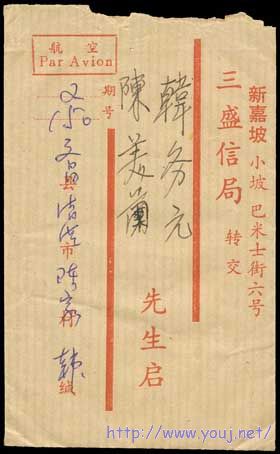 新嘉坡 小坡 巴米士街六号
三盛信局 转交
韓务元
陳美蘭
先生启
期号
航空
Par Avion
150
文昌县清澜市陈家村 韩缄
http://www.youj.net/